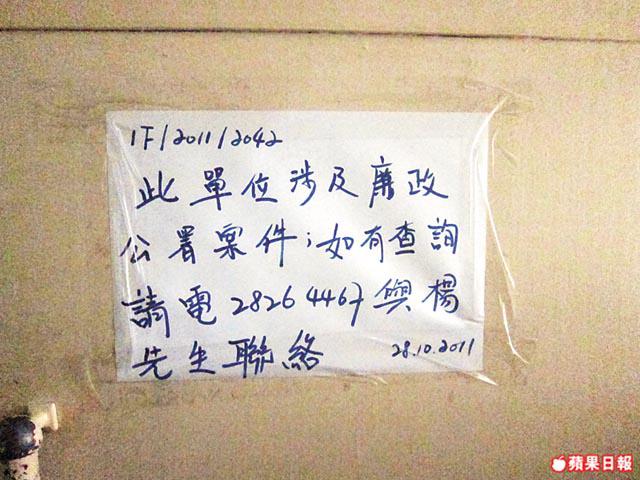 1F/2011/2042
此單位涉及廉政
公署案件；如有查詢
請電 2826 4467 與楊
先生聯絡
28.10.2011
蘋果日報